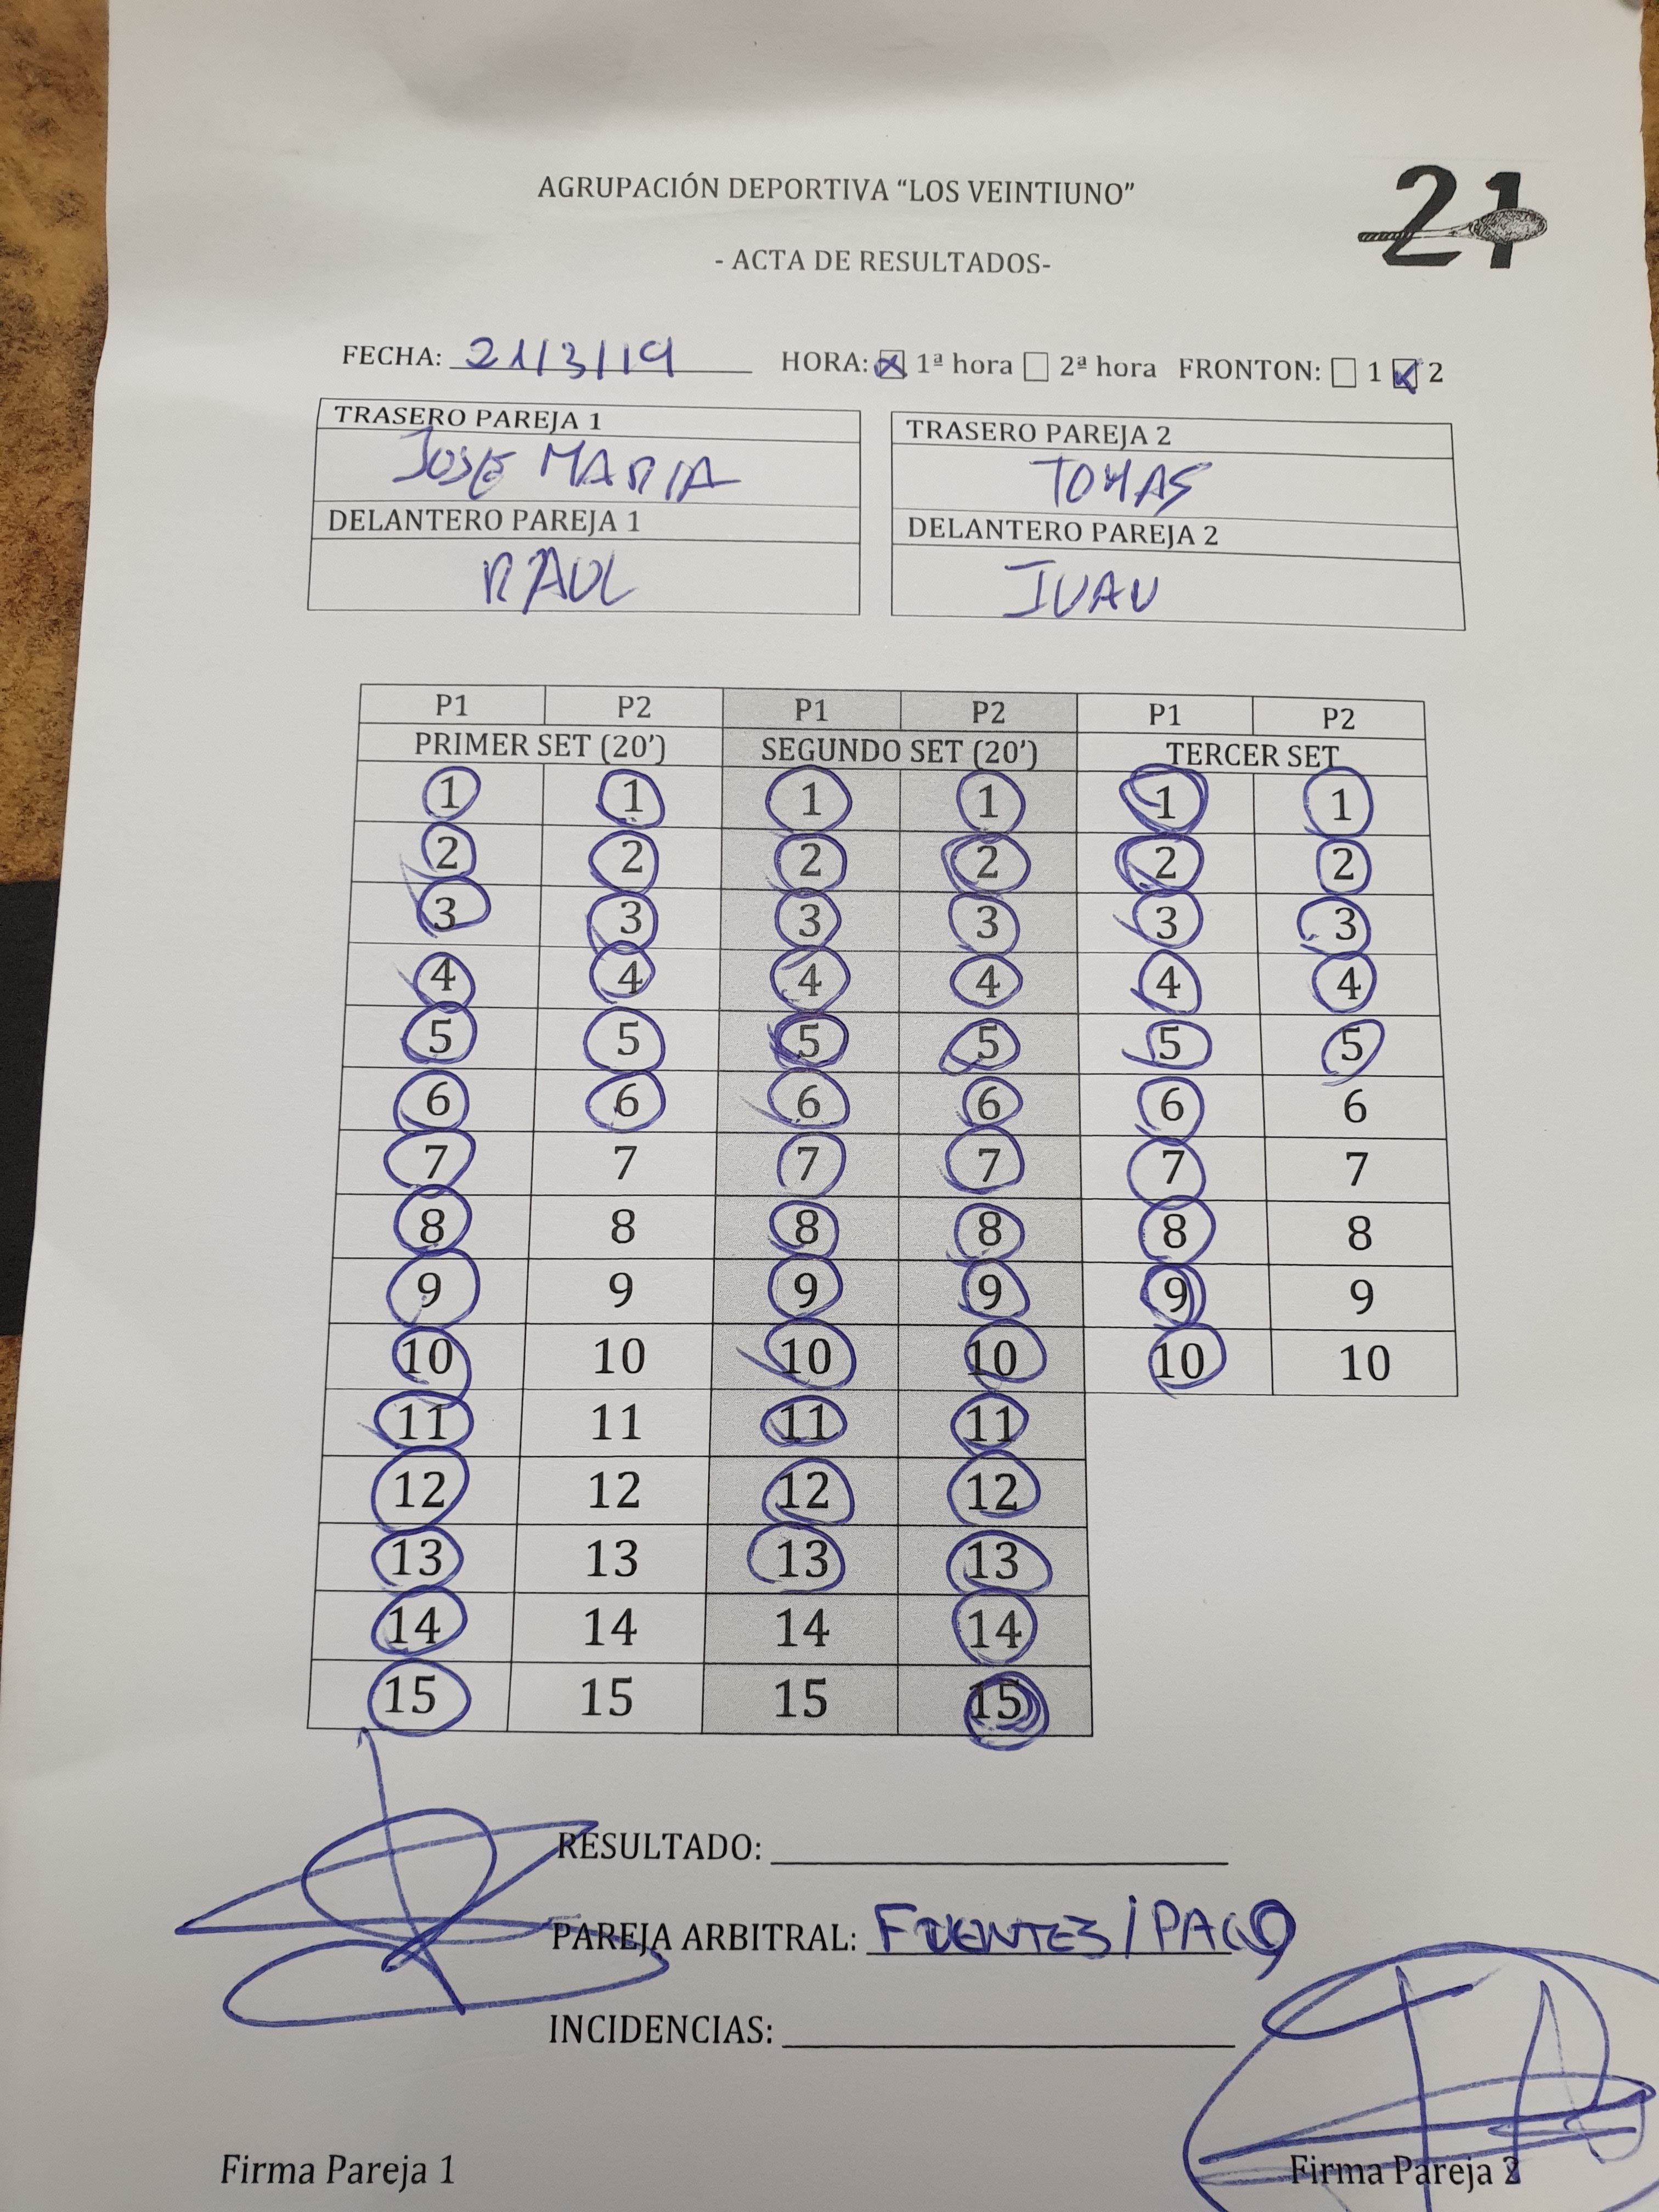 21
AGRUPACIÓN DEPORTIVA “LOS VEINTIUNO”
- ACTA DE RESULTADOS-
FECHA: 21/3/19 HORA: 1ª hora 2ª hora FRONTON: 1 2
TRASERO PAREJA 1 TRASERO PAREJA 2
JOSE MARIA TOMAS
DELANTERO PAREJA 1 DELANTERO PAREJA 2
RAUL JUAN
P1 P2 P1 P2 P1 P2
PRIMER SET (20’) SEGUNDO SET (20’) TERCER SET
1 1 1 1 1 1
2 2 2 2 2 2
3 3 3 3 3 3
4 4 4 4 4 4
5 5 5 5 5 5
6 6 6 6 6 6
7 7 7 7 7 7
8 8 8 8 8 8
9 9 9 9 9 9
10 10 10 10 10 10
11 11 11 11
12 12 12 12
13 13 13 13
14 14 14 14
15 15 15 15
RESULTADO:
PAREJA ARBITRAL: FUENTES/PACO
INCIDENCIAS:
Firma Pareja 1 Firma Pareja 2